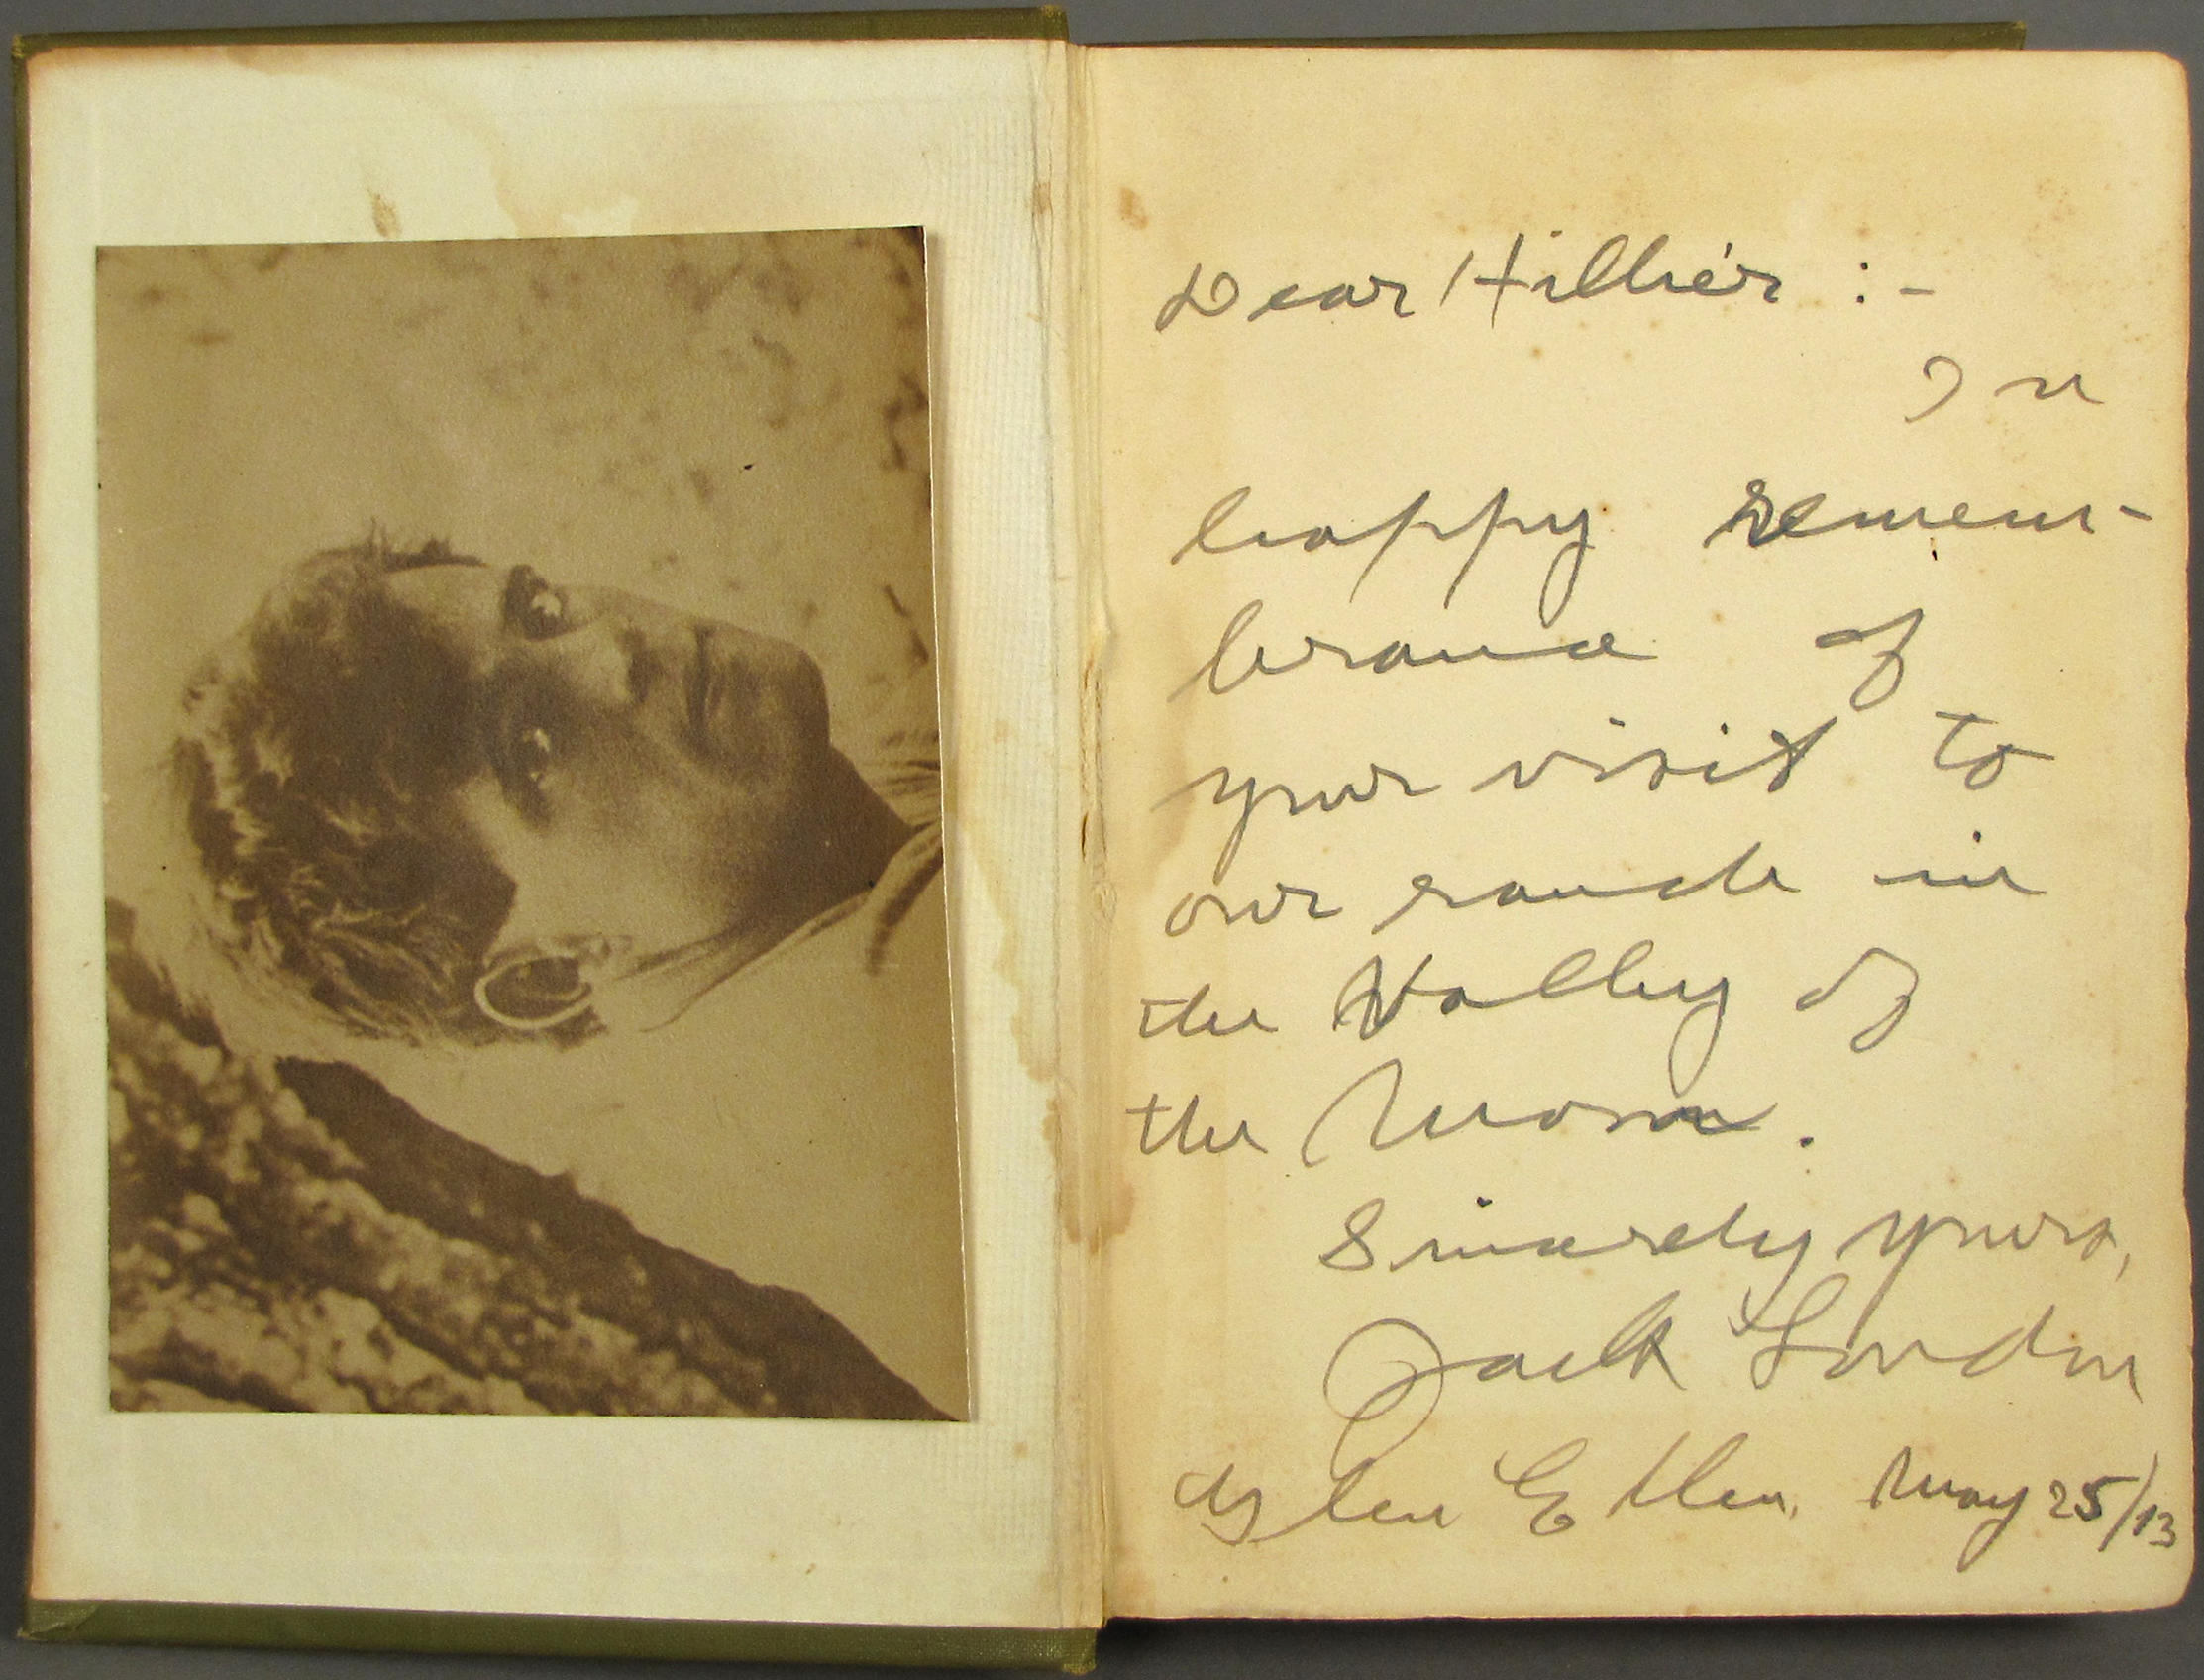 Dear Hillier :-
In
happy remem-
brance of
your visit to
our ranch in
the Valley of
the Moon.
Sincerely yours,
Jack London
Glen Ellen, May 25/13